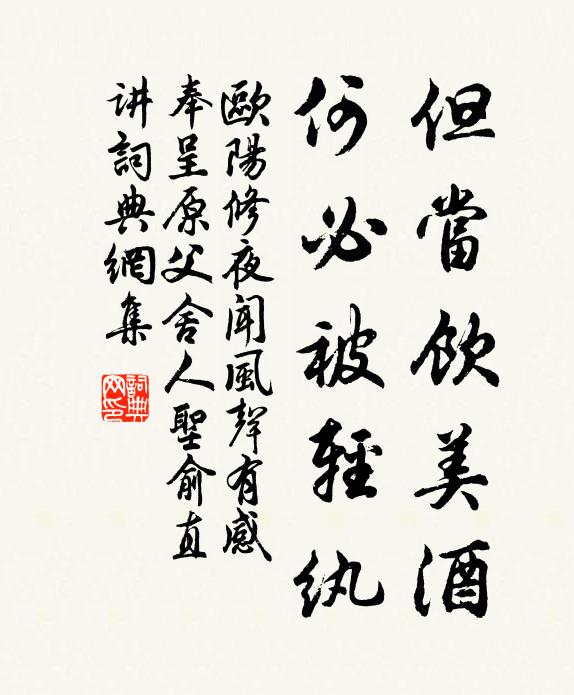 但當飲美酒
何必被輕紈
歐陽修夜聞風聲有感
奉呈原父舍人聖俞直
讲詞典網集
詞典网印